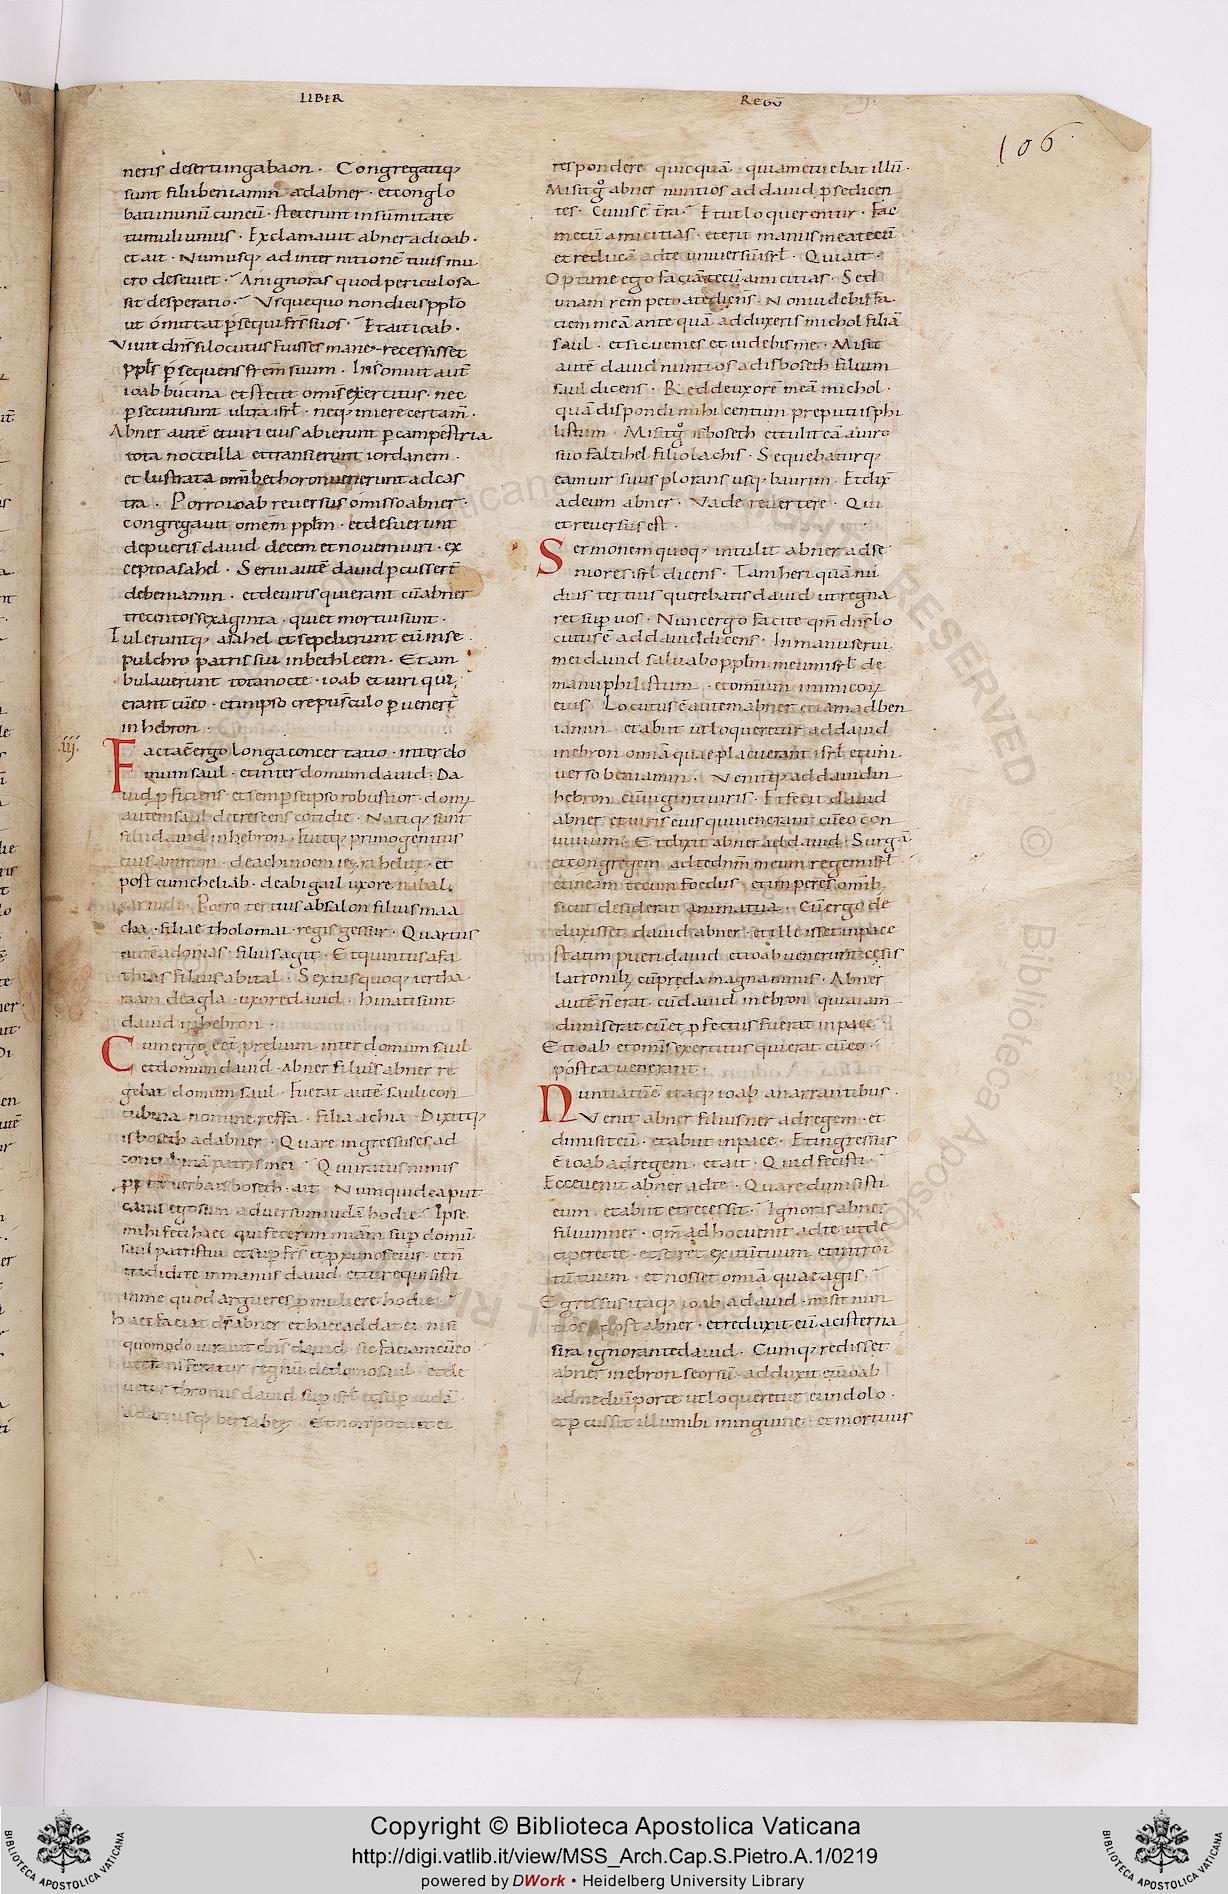 LIBER
REGŪ
106
neris desertungabaon · Congregatiq;
sunt filii beniamin ad abner · et conglo
bati in unū cuneū · steterunt in sūmitate
tumuli unius · Exclamavit abner ad ioab ·
et ait · Num usq; ad internitionē tuus mu
cro deseviet · An ignoras quod periculosa
sit desperatio · Usquequo non dicis pplo
ut omittat psequi frs suos · Et ait ioab ·
Vivit dns si locutus fuisses mane · recessisset
ppls psequens frem suum · Insonuit aut
ioab bucina et stetit omis exercitus · nec
psecuti sunt ultra isrl · neq; iniere certam ·
Abner autē et viri eius abierunt p campestria
tota nocte illa et transierunt iordanem ·
et lustrata omi bethoron venerunt ad cas
tra · Porro ioab reversus omisso abner ·
congregavit omem pplm · et defuerunt
de pueris david decem et novem viri · ex
cepto asahel · Servi autē david pcusserт
de beniamin · et de viris qui erant cū abner
trecentos sexaginta · qui et mortui sunt ·
Tuleruntq; asahel et sepelierunt eū in se
pulchro patris sui in bethleem · Et am
bulaverunt tota nocte · ioab et viri qui
erant cū eo · et in ipso crepusculo pvenerт
in hebron ·
iij
Facta ē ergo longa concertatio · inter do
mum saul · et inter domum david · Da
vid pficiens · et semp seipso robustior · dom;
autem saul decrescens cotidie · Natiq; sunt
filii david in hebron · Fuitq; primogenitus
eius amnon · de achinoem iezrahelite · et
post eum cheliab · de abigail uxore nabal
carmeli · Porro tertius absalon filius maa
cha · filiae tholomai · regis gessur · Quartus
autē adonias · filius agit · Et quintus afa
thias filius abital · Sextus quoq; iethra
raam de agla · uxore david · Hi nati sunt
david in hebron ·
Cum ergo eēt prelium inter domum saul
et domum david · Abner filius abner re
gebat domum saul · Fuerat autē sauli con
cubina nomine reffa · filia achia · Dixitq;
isboseth ad abner · Quare ingressus es ad
concubinā patris mei · Qui iratus nimis
ppter verba isboseth · ait · Numquid caput
canis ego sum adversum iudā hodie · Ipse
mihi feci haec qui fecerim miam sup domū
saul patris tui · et sup frs et pximos eius · et n
tradidi te in manus david · et tu requisisti
in me quod argueres p muliere hodie ·
Haec faciat ds abner et haec addat ei nisi
quomodo iuravit dns david · sic faciam cū eo ·
ut transferatur regnū de domo saul · et ele
vetur thronus david sup isrl et sup iudā ·
a dan usq; bersabee · Et non potuit ei
respondere quicquā · quia metuebat illū ·
Misit g abner nuntios ad david p se dicen
tes · Cuius ē tra · Et ut loquerentur · Fac
mecū amicitias · et erit manus mea tecū
et reducā ad te universū isrl · Qui ait ·
Optime ego faciā tecū amicitias · Sed
unam rem peto a te dicens · Non videbis fa
ciem meā ante quā adduxeris michol filiā
saul · et sic venies et videbis me · Misit
autē david nuntios ad isboseth filium
saul dicens · Redde uxorē meā michol ·
quā dispondi mihi centum preputiis phi
listum · Misit g isboseth et tulit eā a viro
suo faltihel filio lachis · Sequebaturq;
eam vir suus plorans usq; baurim · Et dix
ad eum abner · Vade revertere · Qui
et reversus est ·
Sermonem quoq; intulit abner ad se
niores isrl dicens · Tam heri quā nu
dius tertius querebatis david ut regna
ret sup vos · Nunc ergo facite qm dns lo
cutus ē ad david dicens · In manu servi
mei david salvabo pplm meum isrl de
manu philistum · et omium inimicor
eius · Locutus ē autem abner etiam ad ben
iamin · et abiit ut loqueretur ad david
in ebron omia quae placuerant isrl et uni
verso beniamin · Venitq; ad david in
hebron cū viginti viris · Et fecit david
abner et viris eius qui venerant cū eo con
vivium · Et dixit abner ad david · Surgā
et congregem ad te dnm meum regem isrl
et ineam tecum foedus · et imperes omib;
sicut desiderat anima tua · Cū ergo de
duxisset david abner · et ille isset in pace
statim pueri david et ioab venerunt cesis
latronib; cū preda magna nimis · Abner
autē n erat cū david in ebron quia iam
dimiserat eū et pfectus fuerat in pace
Et ioab et omis exercitus qui erat cū eo ·
postea venerant ·
Nuntiatū ē itaq; ioab a narrantibus ·
Venit abner filius ner ad regem · et
dimisit eū · et abiit in pace · Et ingressus
ē ioab ad regem · et ait · Quid fecisti ·
Ecce venit abner ad te · Quare dimisisti
eum · et abiit et recessit · Ignoras abner
filium ner · qm ad hoc venit ad te ut de
ciperet te · et sciret exitū tuum et introi
tū tuum · et nosset omia quae agis ·
Egressus itaq; ioab a david · misit nun
tios post abner · et reduxit eū a cisterna
sira ignorante david · Cumq; redisset
abner in ebron seorsū · adduxit eū ioab
ad mediū porte ut loqueretur ei in dolo ·
et pcussit illum ibi in inguine · et mortuus
Copyright © Biblioteca Apostolica Vaticana
http://digi.vatlib.it/view/MSS_Arch.Cap.S.Pietro.A.1/0219
powered by DWork • Heidelberg University Library